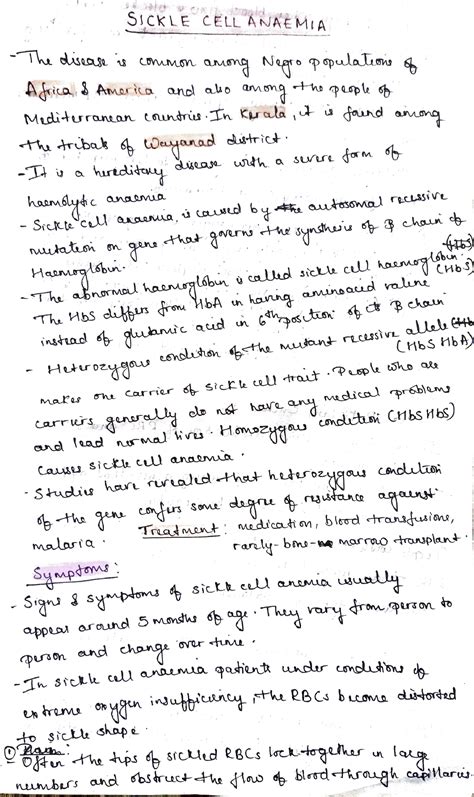 SICKLE CELL ANAEMIA
- The disease is common among Negro populations of
Africa & America and also among the people of
Mediterranean countries. In Kerala, it is found among
the tribals of Wayanad district.
- It is a hereditory disease with a severe form of
haemolytic anaemia
- Sickle cell anaemia, is caused by the autosomal recessive
mutation on gene that governs the synthesis of B chain of
Haemoglobin.
- The abnormal haemoglobin is called sickle cell haemoglobin. (HbS)
The HbS differs from HbA in having aminoacid valine
instead of glutamic acid in 6th position of B chain
- Heterozygous condition of the mutant recessive allele (HbS HbA)
makes one carrier of sickle cell trait. People who are
carriers generally do not have any medical problems
and lead normal lives. Homozygous condition (HbS HbS)
causes sickle cell anaemia.
- Studies have revealed that heterozygous condition
of the gene confers some degree of resistance against
malaria. Treatment: medication, blood transfusions,
rarely - bone marrow transplant.
Symptoms:
- Signs & symptoms of sickle cell anemia usually
appear around 5 months of age. They vary from person to
person and change over time.
- In sickle cell anaemia patients under conditions of
extreme oxygen insufficiency, the RBCs become distorted
to sickle shape.
① Pain:
Often the tips of sickled RBCs lock together in large
numbers and obstruct the flow of blood through capillaries.